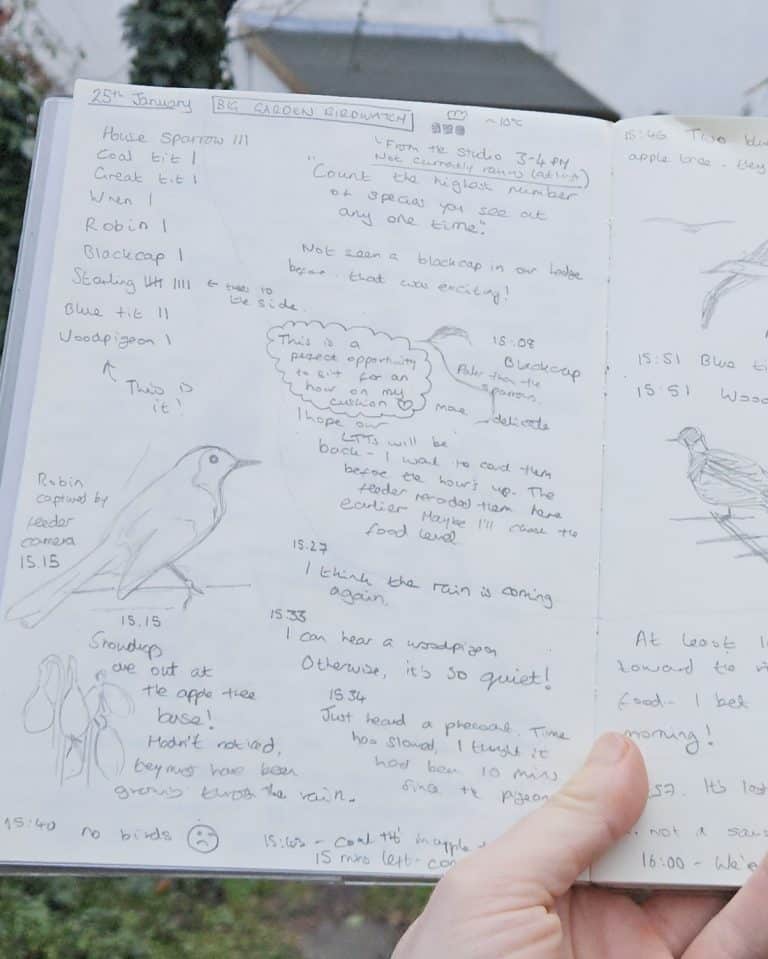 25th January BIG GARDEN BIRDWATCH ~10°C
House Sparrow III
Coal tit I
Great tit I
Wren I
Robin I
Blackcap I
Starling IIII IIII ← trees to
the side.
Blue tit II
Woodpigeon I
↖ This is
it!
Robin
captured by
feeder
camera
15.15
15.15
Snowdrops
are out at
the apple tree
base!
Hadn't noticed,
they must have been
growing through the rain.
15:40 no birds ☹
From the studio 3-4PM
Not currently raining
"Count the highest number
of species you see at
any one time."
Not seen a blackcap in our hedge
before. that was exciting!
This is a
perfect opportunity
to sit for an
hour on my
cushion ♡
15:08
Blackcap
Paler than the
sparrows.
more delicate
I hope our
LTTs will be
back - I want to count them
before the hour's up. The
feeder recorded them here
earlier Maybe I'll check the
food level
15:27
I think the rain is coming
again.
15:33
I can hear a woodpigeon
Otherwise, it's so quiet!
15.34
Just heard a pheasant. Time
has slowed, I thought it
had been 10 mins
since the pigeon
coal tit in apple
15 mins left-
15:45 Two
apple tree. they
15:51 Blue
15:51
At least
toward the
food - I bet
morning!
57. It's
not a
16:00 -